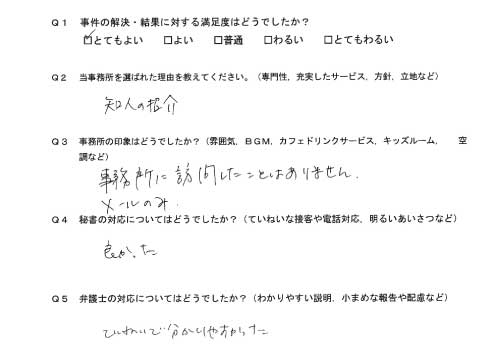 Q1　事件の解決・結果に対する満足度はどうでしたか？
☑とてもよい　□よい　□普通　□わるい　□とてもわるい
Q2　当事務所を選ばれた理由を教えてください。（専門性，充実したサービス，方針，立地など）
知人の紹介
Q3　事務所の印象はどうでしたか？（雰囲気，BGM，カフェドリンクサービス，キッズルーム，　空
調など）
事務所に訪問したことはありません.
メールのみ.
Q4　秘書の対応についてはどうでしたか？（ていねいな接客や電話対応，明るいあいさつなど）
良かった
Q5　弁護士の対応についてはどうでしたか？（わかりやすい説明，小まめな報告や配慮など）
ていねいで分かりやすかった